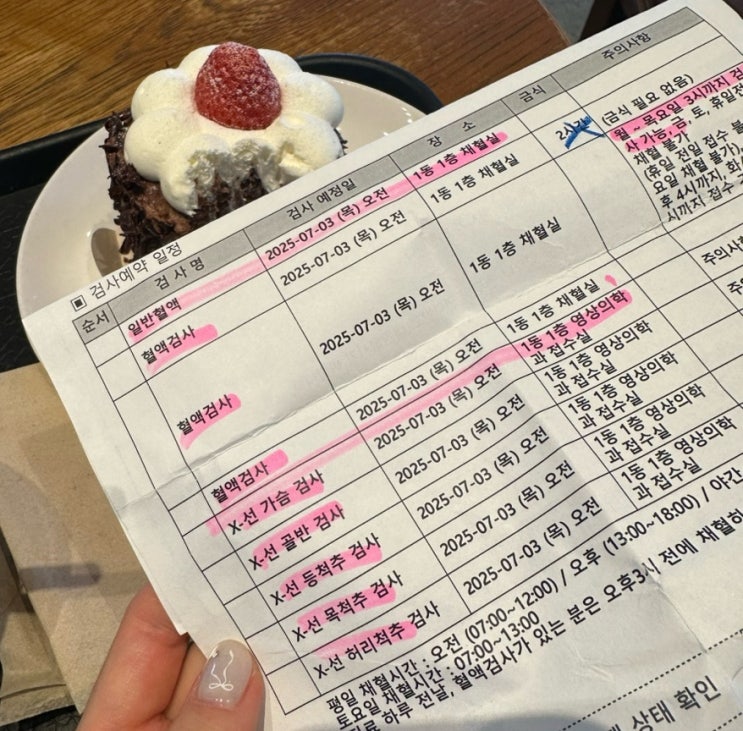 ■ 검사예약 일정
순서 검사명 검사 예정일 장 소 금식 주의사항
일반혈액 2025-07-03 (목) 오전 1동 1층 채혈실 (금식 필요 없음)
혈액검사 2025-07-03 (목) 오전 1동 1층 채혈실 2시간 월 ~ 목요일 3시까지 검
사 가능, 금, 토, 휴일전
채혈 불가
(휴일 전일 접수 불
요일 채혈 불가),
후 4시까지, 화
시까지 접수
혈액검사 2025-07-03 (목) 오전 1동 1층 채혈실
혈액검사 2025-07-03 (목) 오전 1동 1층 채혈실
X-선 가슴 검사 2025-07-03 (목) 오전 1동 1층 영상의학
과 접수실
X-선 골반 검사 2025-07-03 (목) 오전 1동 1층 영상의학
과 접수실
X-선 등척추 검사 2025-07-03 (목) 오전 1동 1층 영상의학
과 접수실
X-선 목척추 검사 2025-07-03 (목) 오전 1동 1층 영상의학
과 접수실
X-선 허리척추 검사 2025-07-03 (목) 오전 1동 1층 영상의학
과 접수실
평일 채혈시간 : 오전 (07:00~12:00) / 오후 (13:00~18:00) / 야간
토요일 채혈시간 : 07:00~13:00
하루 전날, 혈액검사가 있는 분은 오후3시 전에 채혈하
상태 확인